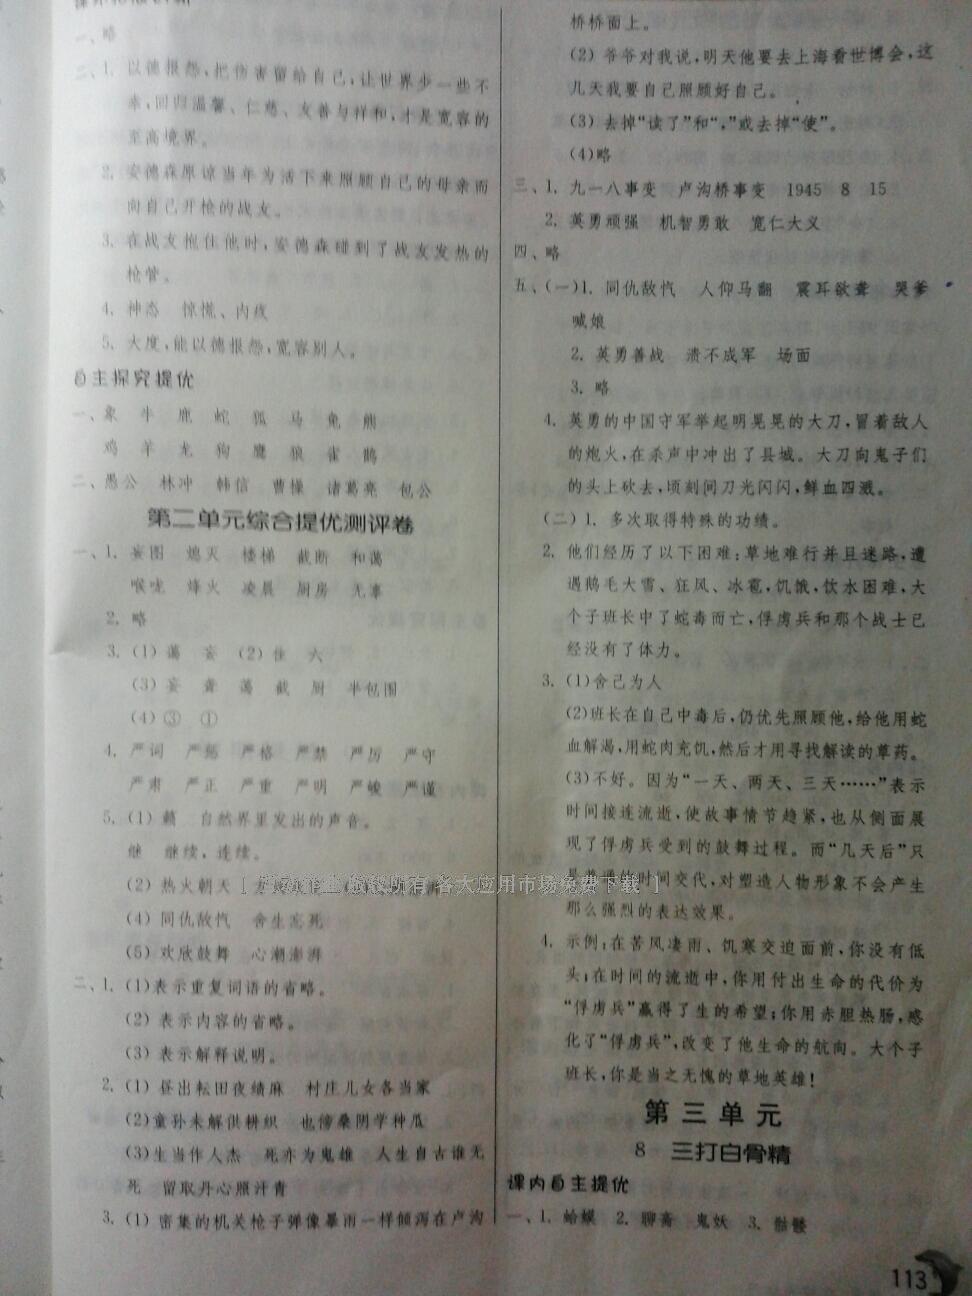 一、略
二、1. 以德报怨,把伤害留给自己,让世界少一些不
幸,回归温馨、仁慈、友善与祥和,才是宽容的
至高境界。
2. 安德森原谅当年为活下来照顾自己的母亲而
向自己开枪的战友。
3. 在战友抱住他时,安德森碰到了战友发热的
枪管。
4. 神态 惊慌、内疚
5. 大度,能以德报怨,宽容别人。
自主探究提优
一、象 牛 鹿 蛇 狐 马 兔 熊
鸡 羊 龙 狗 鹰 狼 雀 鹊
二、愚公 林冲 韩信 曹操 诸葛亮 包公
第二单元综合提优测评卷
一、1. 妄图 熄灭 楼梯 截断 和蔼
喉咙 烽火 凌晨 厨房 无辜
2. 略
3. (1) 蔼 妄 (2) 隹 六
(3) 妄 聋 蔼 截 厨 半包围
(4) ③ ①
4. 严词 严惩 严格 严禁 严厉 严守
严肃 严正 严重 严明 严峻 严谨
5. (1) 籁 自然界里发出的声音。
继 继续,连续。
(2) 热火朝天
(4) 同仇敌忾 舍生忘死
(5) 欢欣鼓舞 心潮澎湃
二、1. (1)表示重复词语的省略。
(2) 表示内容的省略。
(3) 表示解释说明。
2. (1) 昼出耘田夜绩麻 村庄儿女各当家
(2)童孙未解供耕织 也傍桑阴学种瓜
(3)生当作人杰 死亦为鬼雄 人生自古谁无
死 留取丹心照汗青
3. (1) 密集的机关枪子弹像暴雨一样倾泻在卢沟
桥桥面上。
(2) 爷爷对我说,明天他要去上海看世博会,这
几天我要自己照顾好自己。
(3) 去掉“读了”和“,”或去掉“使”。
(4)略
三、1. 九一八事变 卢沟桥事变 1945 8 15
2. 英勇顽强 机智勇敢 宽仁大义
四、略
五、(一)1. 同仇敌忾 人仰马翻 震耳欲聋 哭爹
喊娘
2. 英勇善战 溃不成军 场面
3. 略
4. 英勇的中国守军举起明晃晃的大刀,冒着敌人
的炮火,在杀声中冲出了县城。大刀向鬼子们
的头上砍去,顷刻间刀光闪闪,鲜血四溅。
(二) 1. 多次取得特殊的功绩。
2. 他们经历了以下困难:草地难行并且迷路,遭
遇鹅毛大雪、狂风、冰雹,饥饿,饮水困难,大
个子班长中了蛇毒而亡,俘虏兵和那个战士已
经没有了体力。
3. (1)舍己为人
(2)班长在自己中毒后,仍优先照顾他,给他用蛇
血解渴,用蛇肉充饥,然后才用寻找解读的草药。
(3)不好。因为“一天、两天、三天……”表示
时间接连流逝,使故事情节趋紧,也从侧面展
现了俘虏兵受到的鼓舞过程。而“几天后”只
是普通的时间交代,对塑造人物形象不会产生
那么强烈的表达效果。
4. 示例:在苦风凄雨、饥寒交迫面前,你没有低
头;在时间的流逝中,你用付出生命的代价为
“俘虏兵”赢得了生的希望;你用赤胆热肠,感
化了“俘虏兵”,改变了他生命的航向。大个子
班长,你是当之无愧的草地英雄!
第三单元
8 三打白骨精
课内自主提优
一、1. 蛤蟆 2. 聊斋 鬼妖 3. 骷髅
113